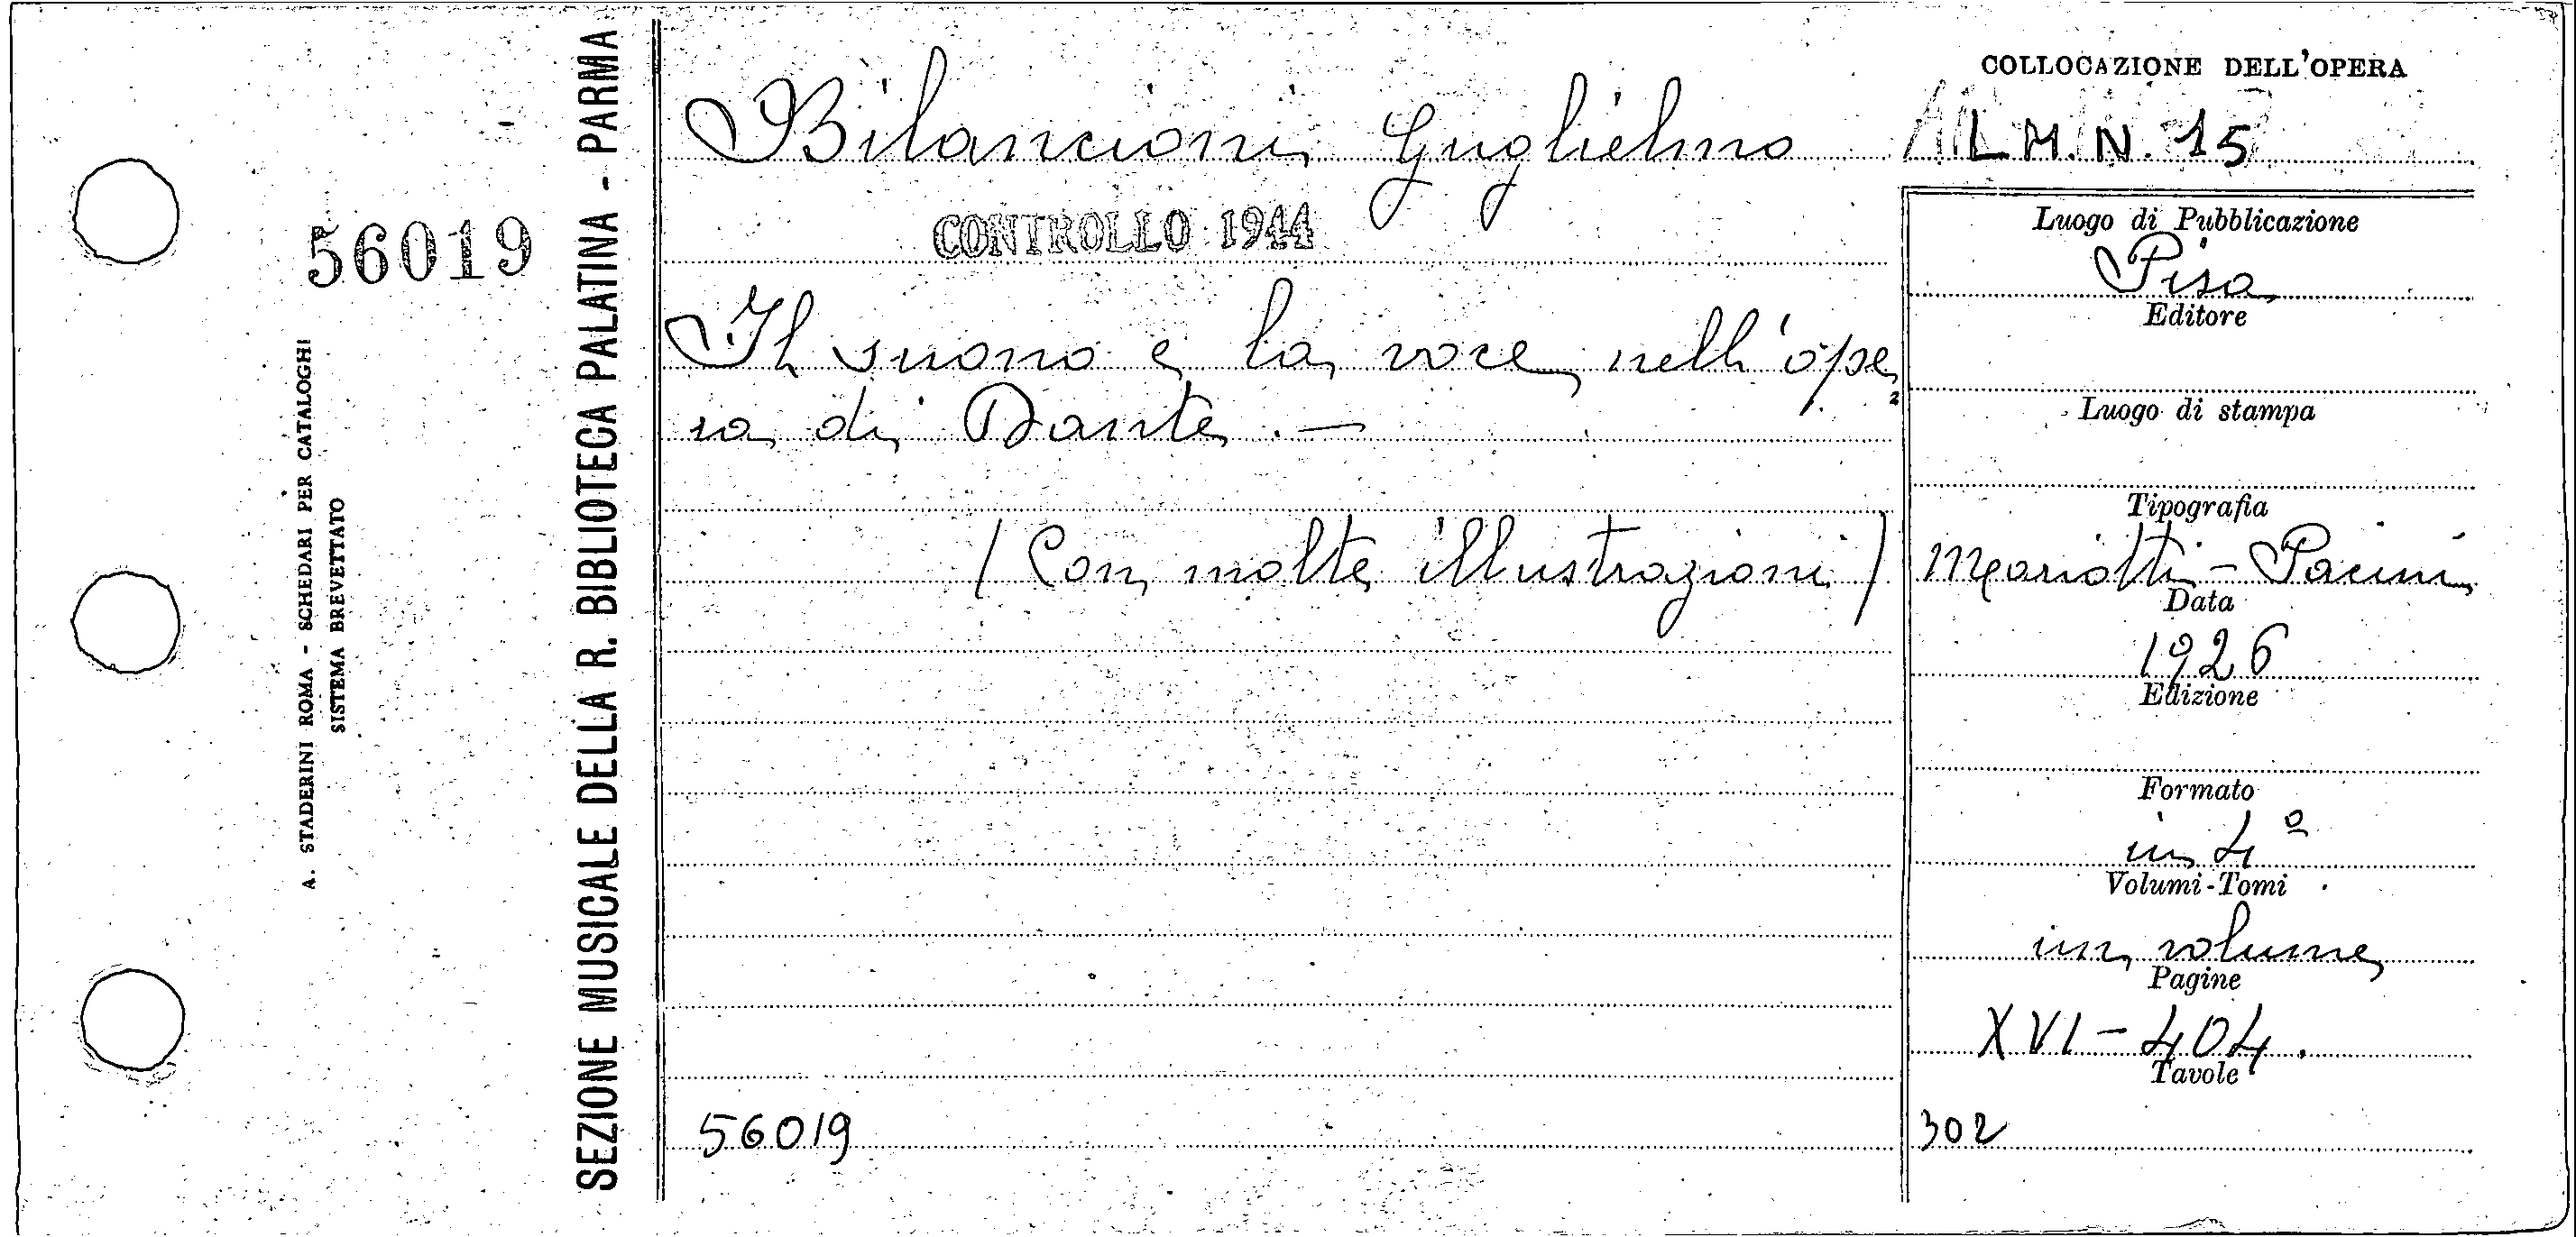 56019
A. STADERINI ROMA - SCHEDARI PER CATALOGHI
SISTEMA BREVETTATO
SEZIONE MUSICALE DELLA R. BIBLIOTECA PALATINA - PARMA
Bilancioni Guglielmo
CONTROLLO 1944
Il suono e la voce nell'ope
ra di Dante. —
(Con molte illustrazioni)
56019
COLLOCAZIONE DELL'OPERA
L.M.N. 15
Luogo di Pubblicazione
Pisa
Editore
Luogo di stampa
Tipografia
Mariotti - Pacini
Data
1926
Edizione
Formato
in 4º
Volumi-Tomi
un volume
Pagine
XVI - 404.
Tavole
302